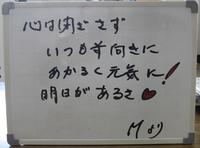 心は閉ざさず
いつも前向きに
あかるく元気に!
明日があるさ♥
Mより